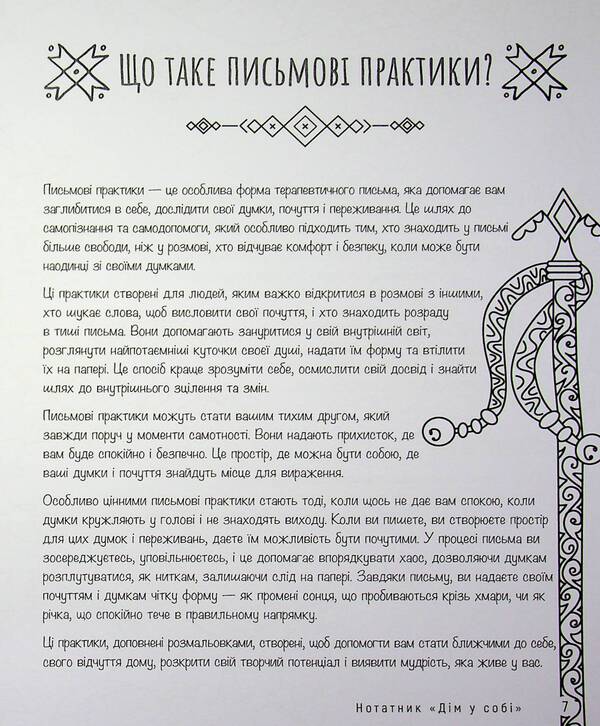 Що таке письмові практики?
Письмові практики — це особлива форма терапевтичного письма, яка допомагає вам
заглибитися в себе, дослідити свої думки, почуття і переживання. Це шлях до
самопізнання та самодопомоги, який особливо підходить тим, хто знаходить у письмі
більше свободи, ніж у розмові, хто відчуває комфорт і безпеку, коли може бути
наодинці зі своїми думками.
Ці практики створені для людей, яким важко відкритися в розмові з іншими,
хто шукає слова, щоб висловити свої почуття, і хто знаходить розраду
в тиші письма. Вони допомагають зануритися у свій внутрішній світ,
розглянути найпотаємніші куточки своєї душі, надати їм форму та втілити
їх на папері. Це спосіб краще зрозуміти себе, осмислити свій досвід і знайти
шлях до внутрішнього зцілення та змін.
Письмові практики можуть стати вашим тихим другом, який
завжди поруч у моменти самотності. Вони надають прихисток, де
вам буде спокійно і безпечно. Це простір, де можна бути собою, де
ваші думки і почуття знайдуть місце для вираження.
Особливо цінними письмові практики стають тоді, коли щось не дає вам спокою, коли
думки кружляють у голові і не знаходять виходу. Коли ви пишете, ви створюєте простір
для цих думок і переживань, даєте їм можливість бути почутими. У процесі письма ви
зосереджуєтесь, уповільнюєтесь, і це допомагає впорядкувати хаос, дозволяючи думкам
розплутуватися, як ниткам, залишаючи слід на папері. Завдяки письму, ви надаєте своїм
почуттям і думкам чітку форму — як промені сонця, що пробиваються крізь хмари, чи як
річка, що спокійно тече в правильному напрямку.
Ці практики, доповнені розмальовками, створені, щоб допомогти вам стати ближчими до себе,
свого відчуття дому, розкрити свій творчий потенціал і виявити мудрість, яка живе у вас.
Нотатник «Дім у собі» 7